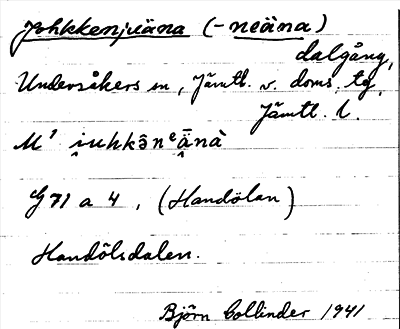 Johkkenjuäna (-neäna)
dalgång,
Undersåkers sn, Jämtl. v. doms. tg,
Jämtl. l.
M' i̯uhkə̑nᵉǟ̯nà
G 71 a 4, (Handölan)
Handölsdalen.
Björn Collinder 1941